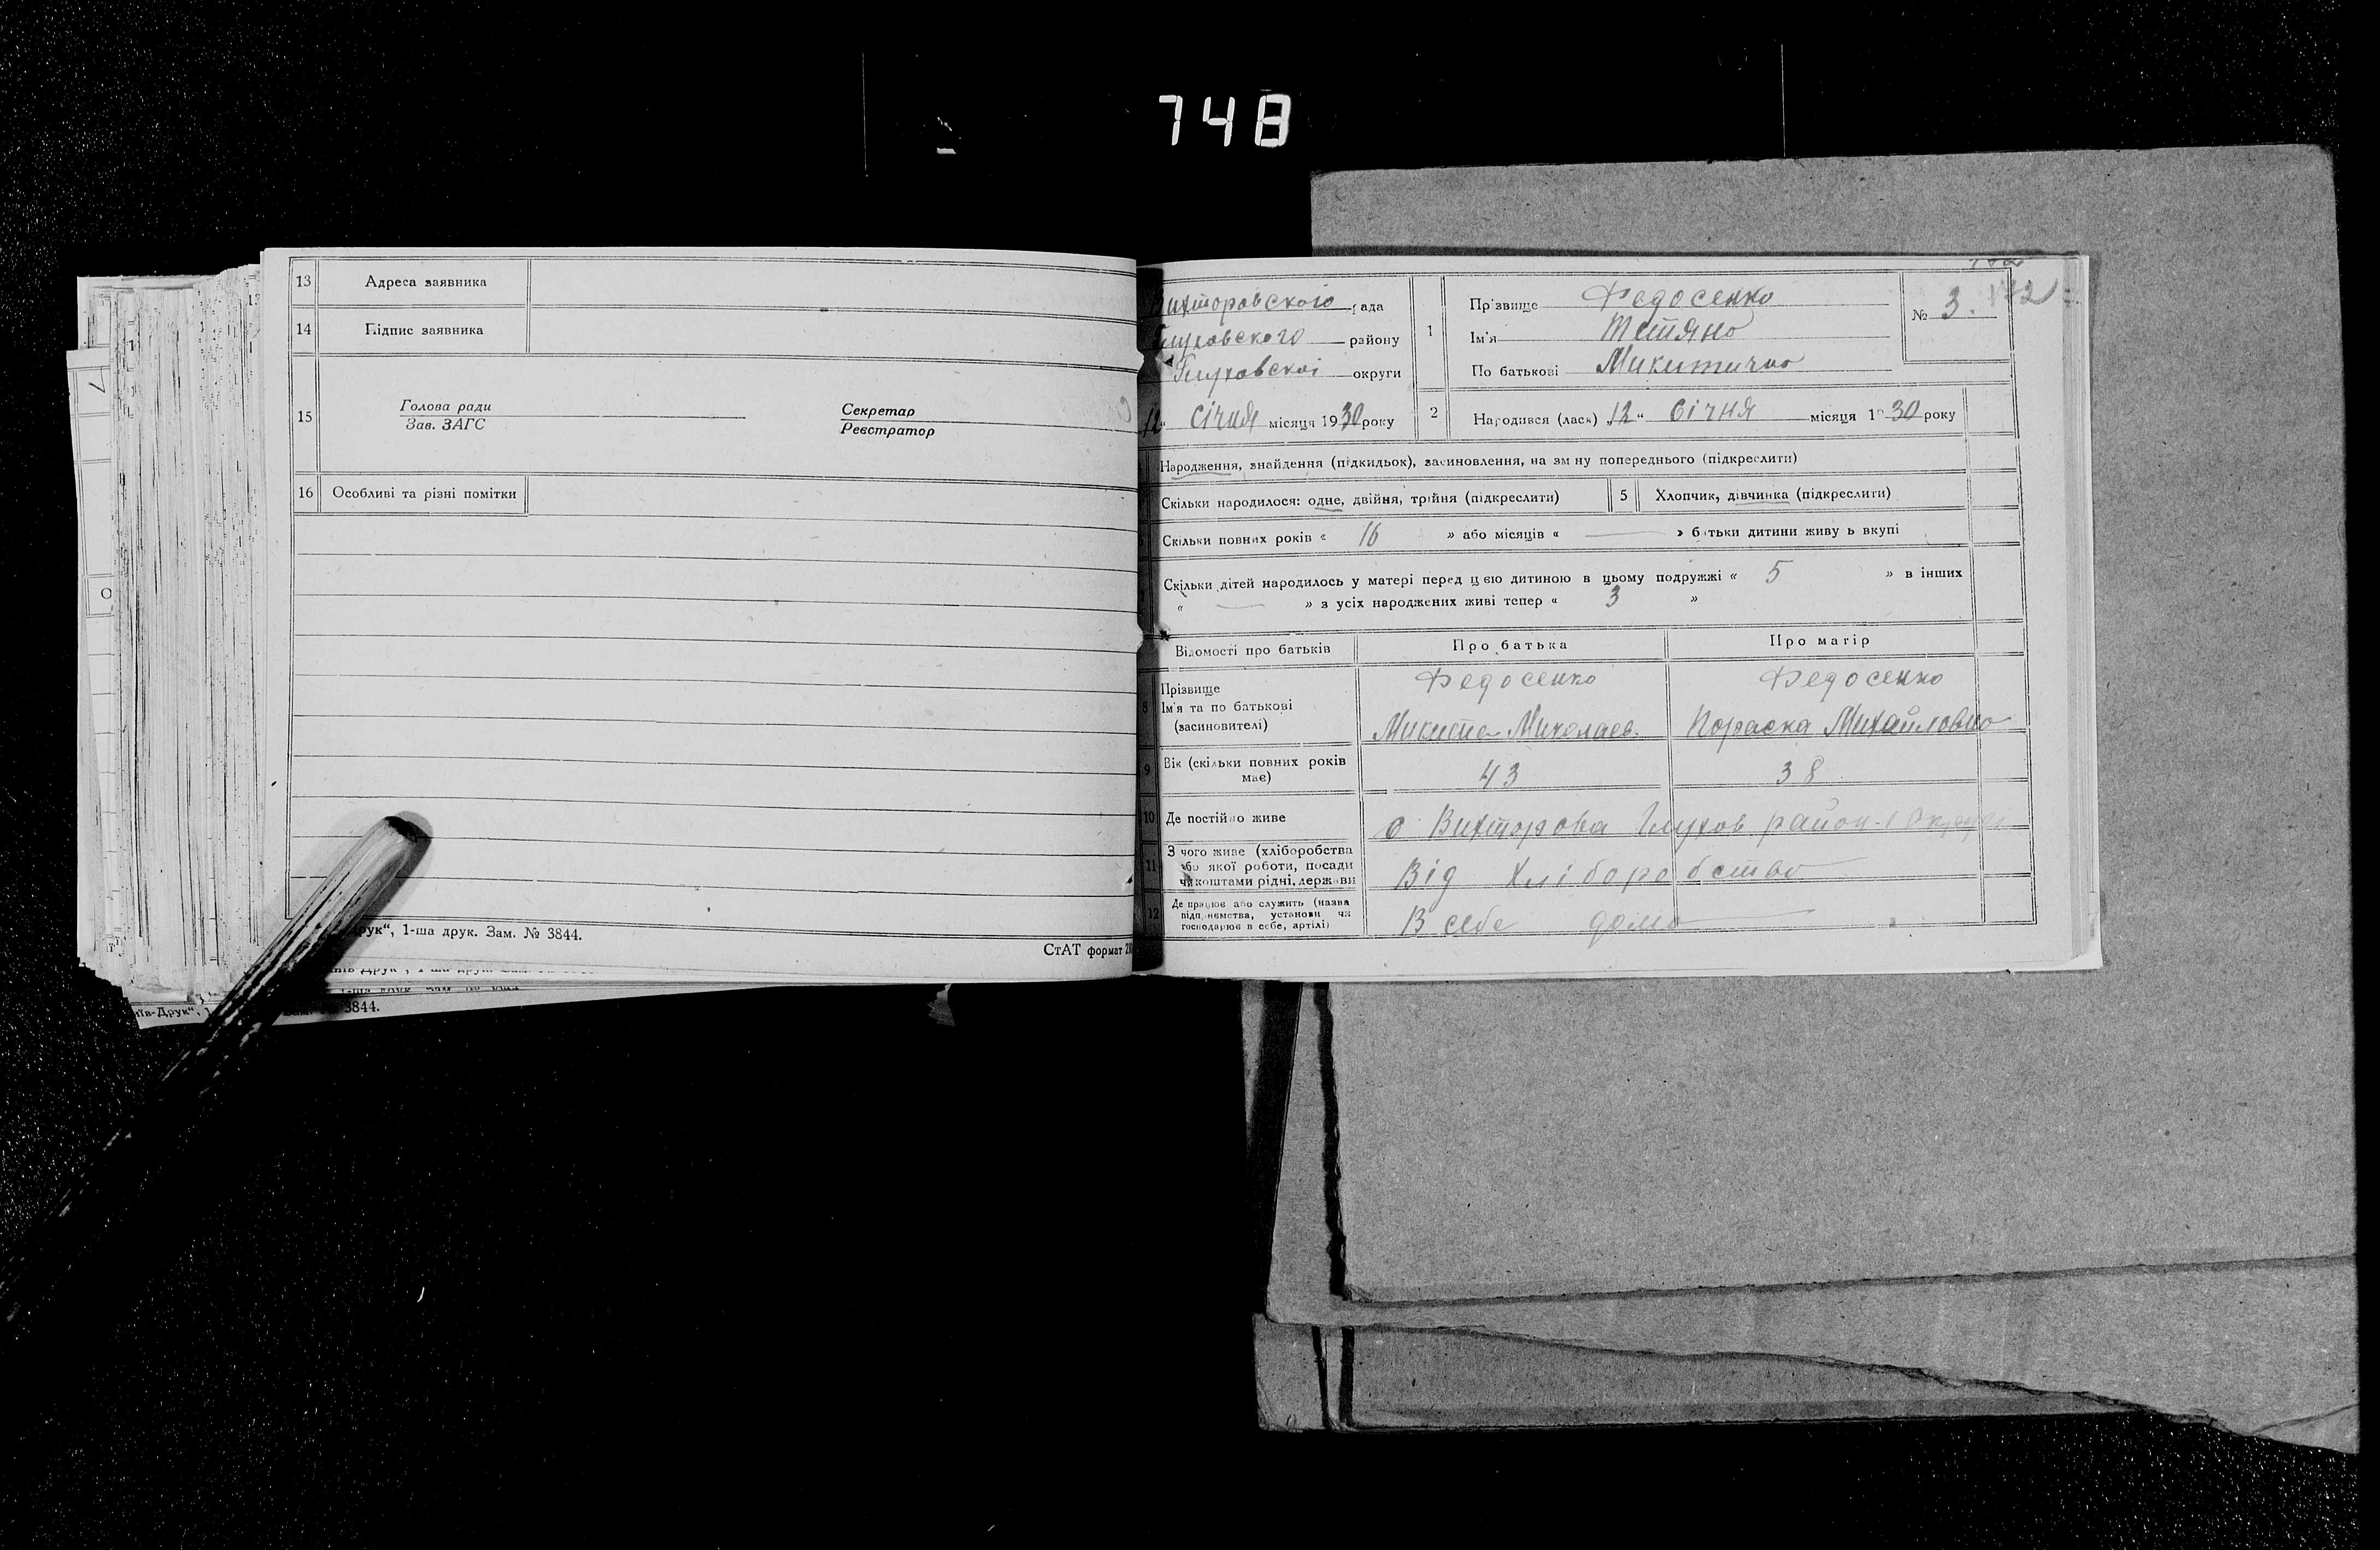 748
13 Адреса заявника
14 Підпис заявника
15 Голова ради Секретар
Зав. ЗАГС Реєстратор
16 Особливі та різні помітки
друк", 1-ша друк. Зам. № 3844.
СтАТ формат
3844.
172
Вихторовского рада
Глуховского району
Глуховскої округи
12 " Січня місяця 1930 року
1 Прізвище Федосенко
Ім'я Тетяно
По батькові Микитично
№ 3.
2 Народився (лась) "12" Січня місяця 1930 року
Народження, знайдення (підкидьок), засиновлення, на зміну попереднього (підкреслити)
Скільки народилося: одне, двійня, трійня (підкреслити) 5 Хлопчик, дівчинка (підкреслити)
Скільки повних років « 16 » або місяців « — » батьки дитини живуть вкупі
Скільки дітей народилось у матері перед цею дитиною в цьому подружжі « 5 » в інших
« — » з усіх народжених живі тепер « 3 »
Відомості про батьків Про батька Про матір
8 Прізвище Федосенко Федосенко
Ім'я та по батькові
(засиновителі) Микита Миколаев. Пораска Михайловно
9 Вік (скільки повних років має) 43 38
10 Де постійно живе с Вихторова Глухов район і Округи
11 З чого живе (хліборобства
або якої роботи, посади
чи коштами рідні, держави Від Хліборобство
12 Де працює або служить (назва
підприємства, установи чи
господарює в себе, артілі) В себе домо